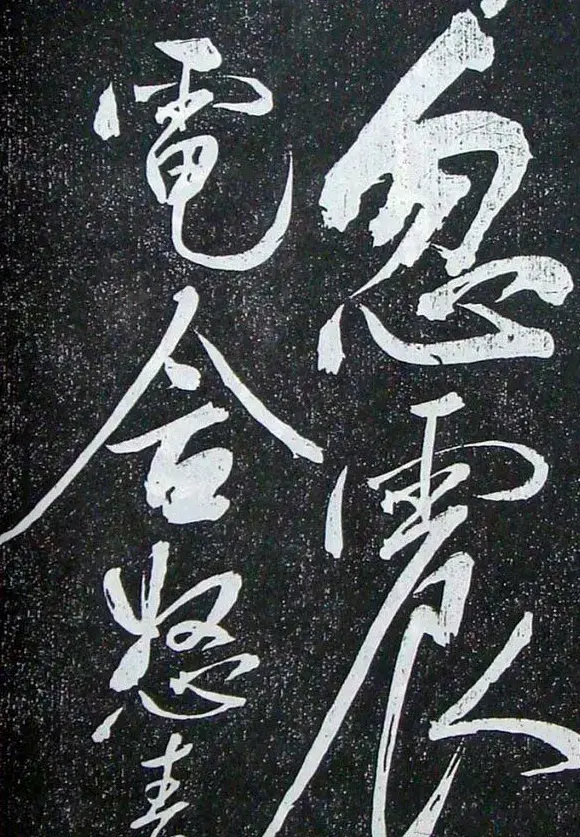 忽震
電含怒